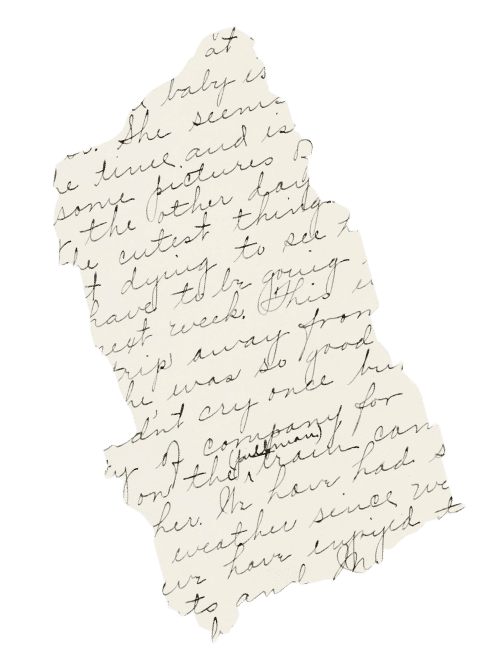 at
baby is
She seems
time and is
some pictures
the other day
cutest thing.
dying to see
have to be going
next week. This
trip away from
he was so good
dnt cry once but
of company for
on the (pullman) train com
her. We have had s
weather since we
we have enjoyed t
ts and M